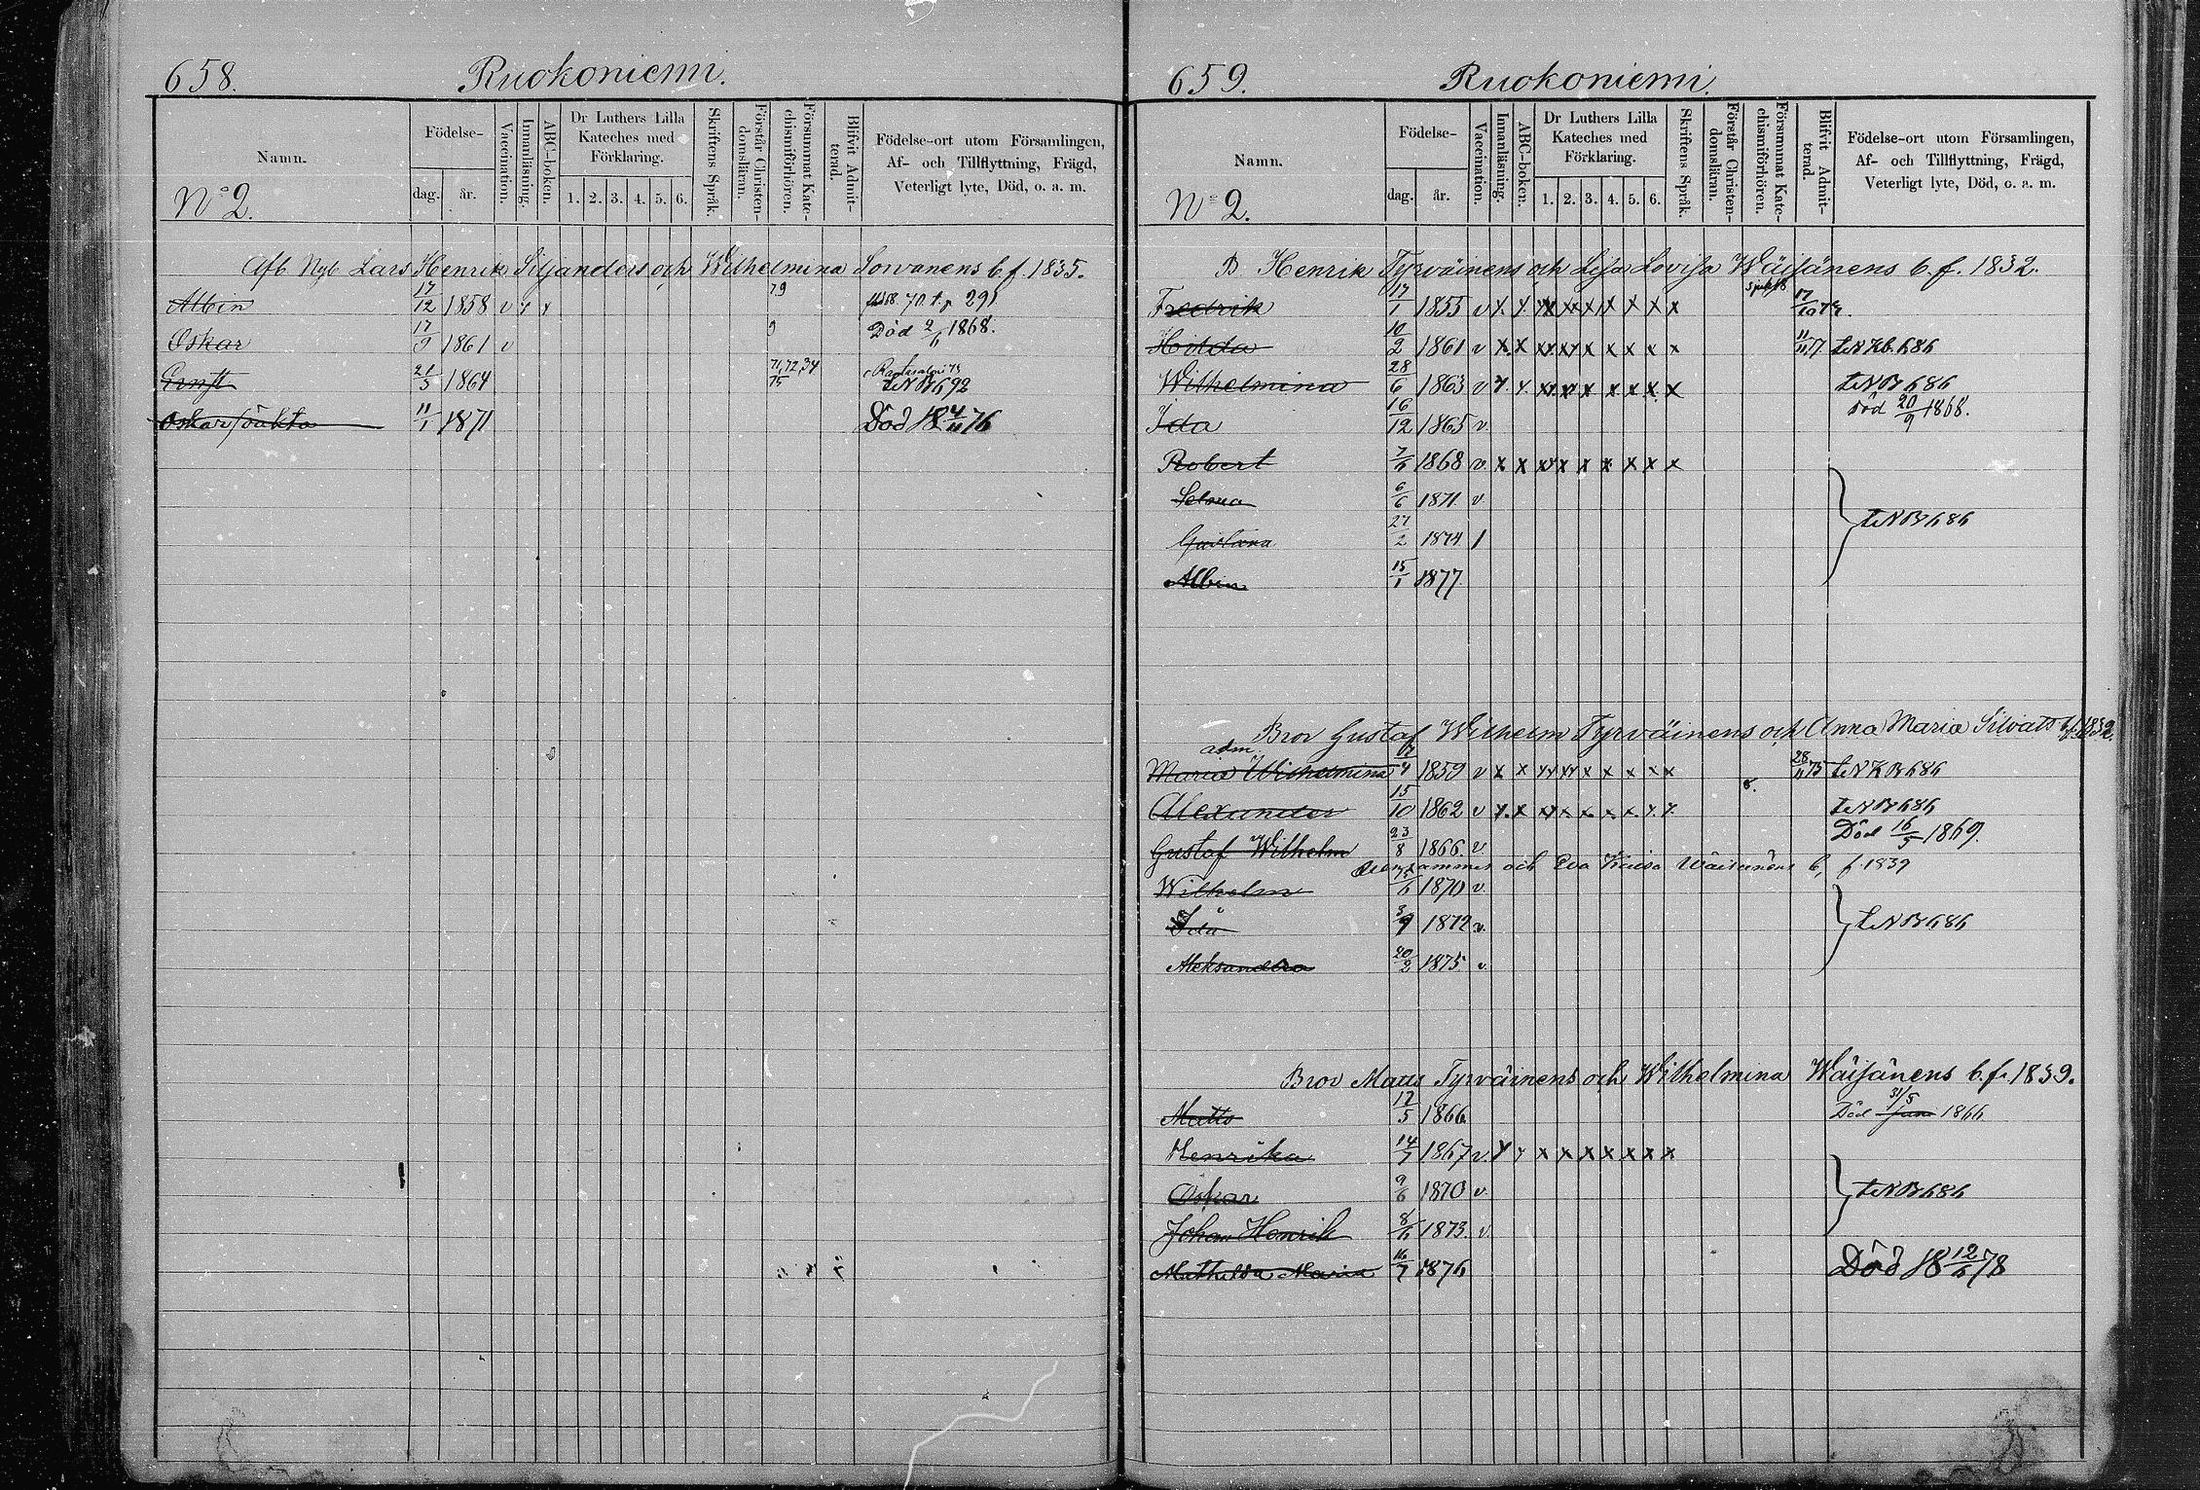 658.
Ruokoniemi.
Namn.
Födelse-
dag. år.
Vaccination.
Innanläsning.
ABC-boken.
Dr Luthers Lilla Kateches med Förklaring.
1. 2. 3. 4. 5. 6.
Skriftens Språk.
Förstår Christendomsläran.
Försummat Katechismiförhören.
Blifvit Admitterad.
Födelse-ort utom Församlingen,
Af- och Tillflyttning, Frägd,
Veterligt lyte, Död, o. a. m.
No 2.
Afb Nyb Lars Henrik Siljanders och Wilhelmina Sorvanens b. f. 1835.
Albin 17/12 1858 v x x 79 291
Oskar 17/9 1861 v 9 Död 2/6 1868.
Ernst 21/5 1864 71,72,74 75 Rantasalmi 73 t. N B 692
Oskar 11/1 1871 Död 18 4/11 76
659.
Ruokoniemi.
Namn.
Födelse-
dag. år.
Vaccination.
Innanläsning.
ABC-boken.
Dr Luthers Lilla
Kateches med
Förklaring.
1. 2. 3. 4. 5. 6.
Skriftens Språk.
Förstår Christendomsläran.
Försummat Katechismiförhören.
Blifvit Admitterad.
Födelse-ort utom Församlingen,
Af- och Tillflyttning, Frägd,
Veterligt lyte, Död, o. a. m.
No 2.
B Henrik Tyrväinens och Lisa Lovisa Wäisänens b. f. 1832.
Fredrik 17/1 1855 v x x xx xx x x x x x 17/10 74.
Hilda 10/2 1861 v x x xx xx x x x x x 11/11 77 t. N K b. 686
Wilhelmina 28/6 1863 v x x xx xx x x x x x t. N B 686
Ida 16/12 1865 v. död 20/9 1868.
Robert 7/6 1868 v. x x xx x x x x x x
Selma 6/6 1871. v
Gustava 27/2 1874 1 t. N B 686
Albin 15/1 1877.
Brov Gustaf Wilhelm Tyrväinens och Anna Maria Silvasts b. f. 1832.
adm.
Maria Wilhelmina 1859 v x x xx xx x x x x x 28/11 75 t. N K B 686
Alexander 15/10 1862 v x. x xx x x x x x x t. N B 686
Gustaf Wilhelm 23/8 1866. v Död 16/5 1869.
Densammes och Eva Kaisa Wäisänens b, f 1839
Wilhelm 1870 v.
Ida 3/9 1872 v. t. N B 686
Aleksandra 20/2 1875 v.
Brov Matts Tyrväinens och Wilhelmina Wäisänens b. f. 1839.
Matts 12/5 1866. Död 31/5 1866
Henrika 14/7 1867 v. x x x x x x x x x
Oskar 9/6 1870 v. t. N B 686
Johan Henrik 8/6 1873. v.
Mathilda Maria 16/7 1876 Död 18 12/6 78